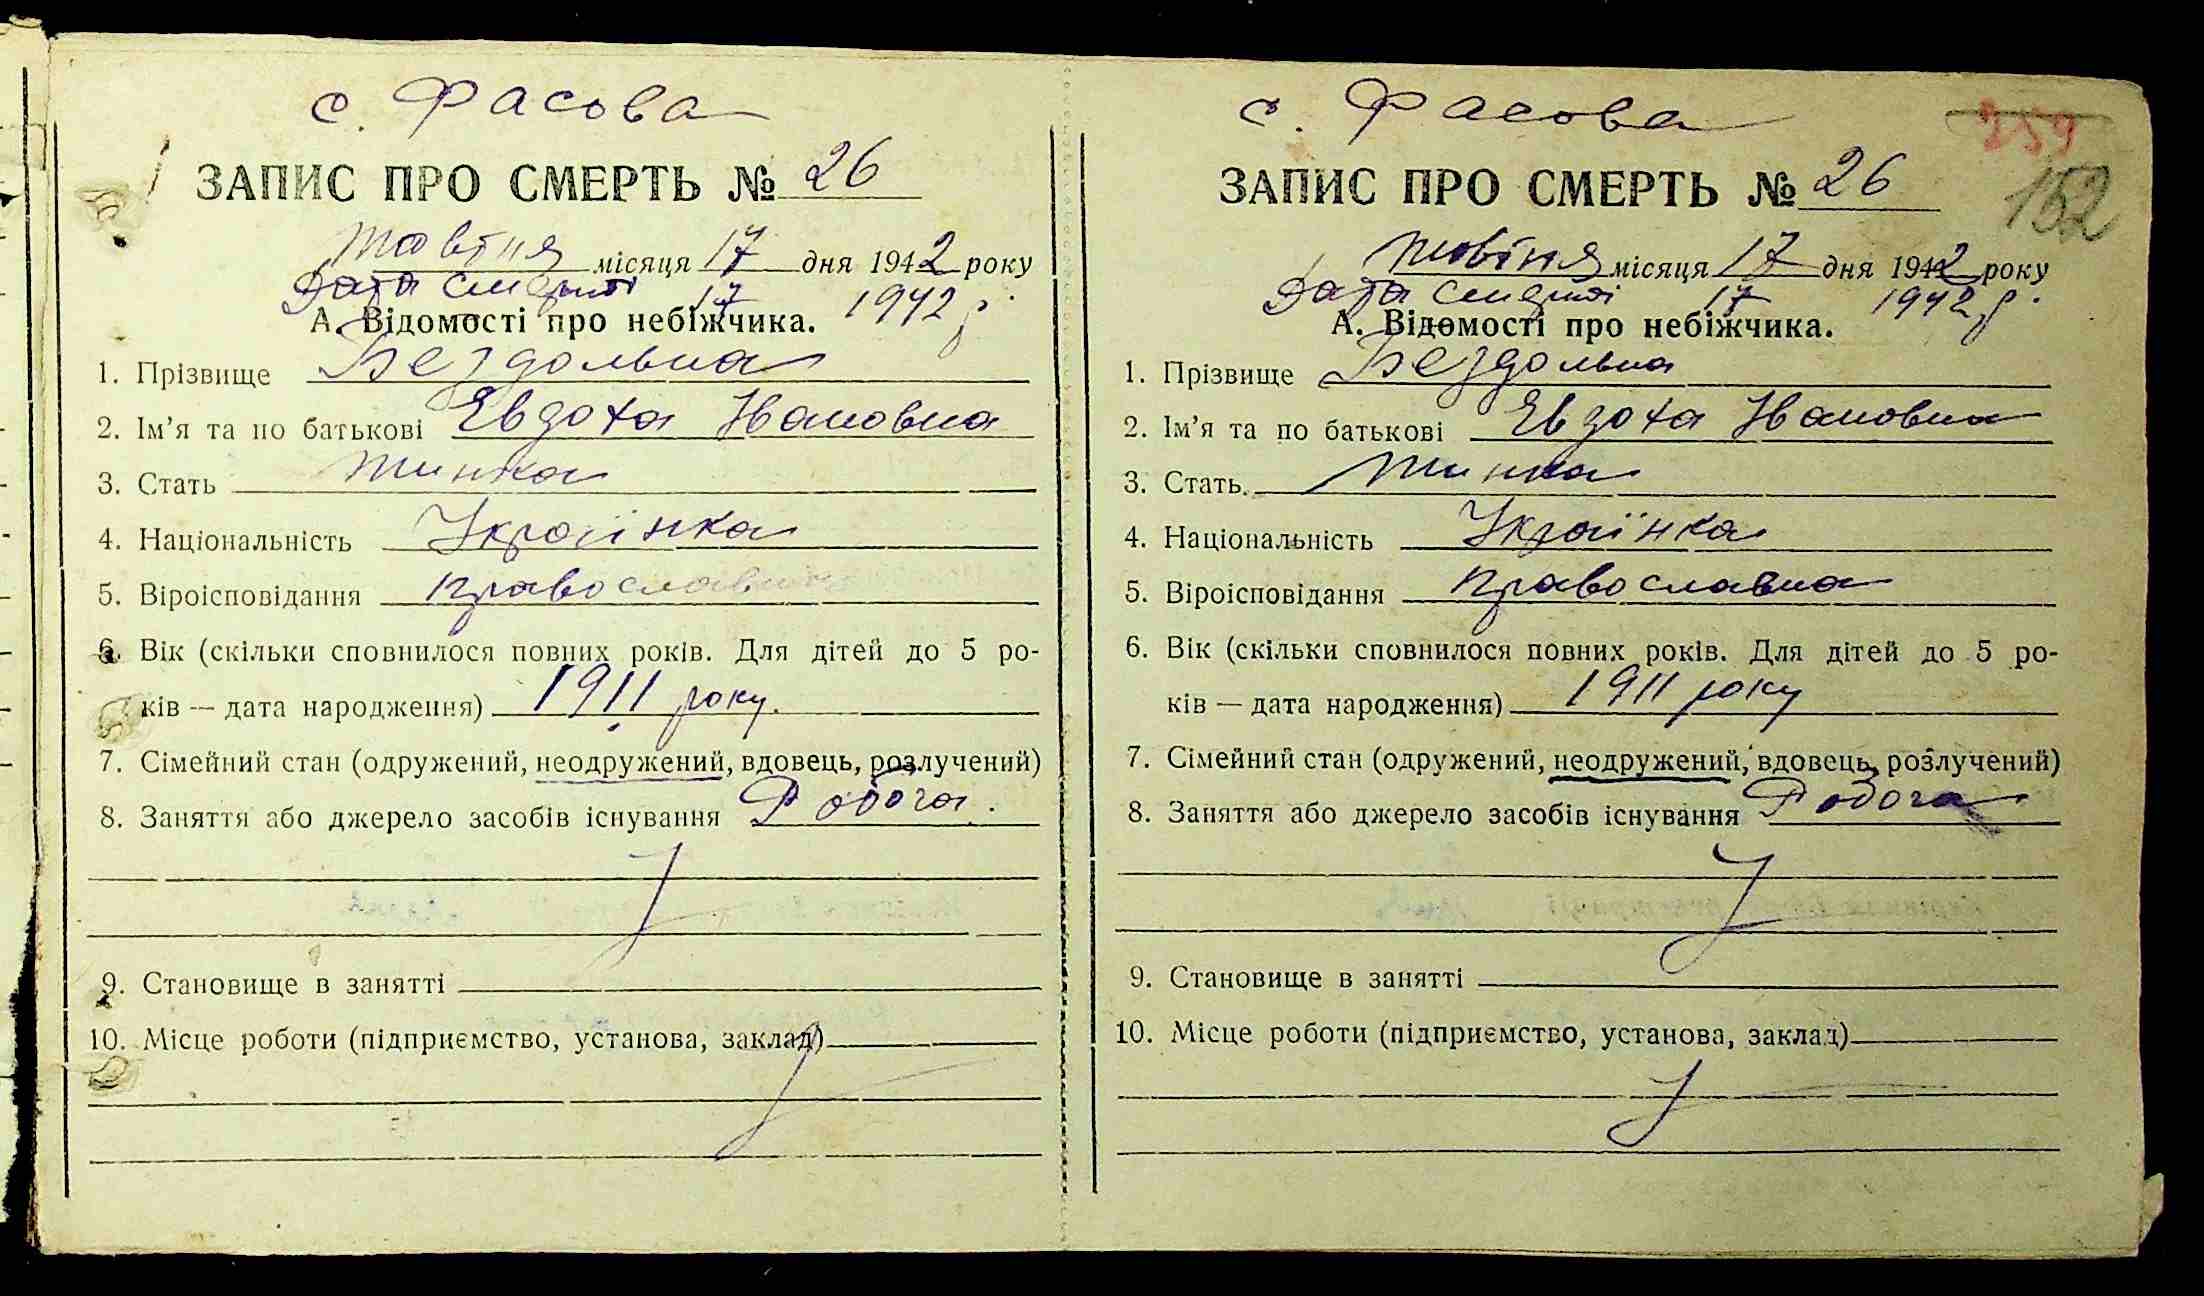 с. Фасова
ЗАПИС ПРО СМЕРТЬ № 26
жовтня місяця 17 дня 1942 року
Дата смерти 17 1942 р.
А. Відомості про небіжчика.
1. Прізвище Бездольна
2. Ім'я та по батькові Евдоха Ивановна
3. Стать Жинка
4. Національність Українка
5. Віроісповідання православна
6. Вік (скільки сповнилося повних років. Для дітей до 5 ро-
ків — дата народження) 1911 року.
7. Сімейний стан (одружений, неодружений, вдовець, розлучений)
8. Заняття або джерело засобів існування Робоча.
9. Становище в занятті
10. Місце роботи (підприємство, установа, заклад)
с. Фасова
359
152
ЗАПИС ПРО СМЕРТЬ № 26
жовтня місяця 17 дня 1942 року
Дата смерти 17 1942 р.
А. Відомості про небіжчика.
1. Прізвище Бездольна
2. Ім'я та по батькові Евдоха Ивановна
3. Стать Жинка
4. Національність Українка
5. Віроісповідання православна
6. Вік (скільки сповнилося повних років. Для дітей до 5 ро-
ків — дата народження) 1911 року
7. Сімейний стан (одружений, неодружений, вдовець, розлучений)
8. Заняття або джерело засобів існування Робоча
9. Становище в занятті
10. Місце роботи (підприємство, установа, заклад)